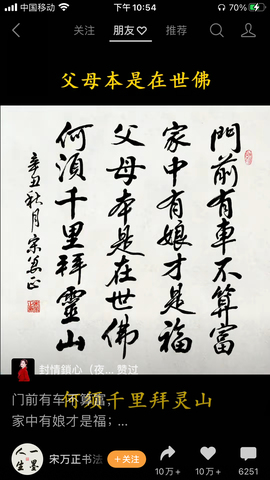 中国移动
下午10:54
70%
关注
朋友
推荐
父母本是在世佛
門前有車不算富
家中有娘才是福
父母本是在世佛
何須千里拜靈山
辛丑秋月宋万正
封情鎖心（夜... 赞过
何须千里拜灵山
门前有车不算富，
家中有娘才是福；...
一墨
人生
宋万正书法
+关注
10万+
10万+
6251